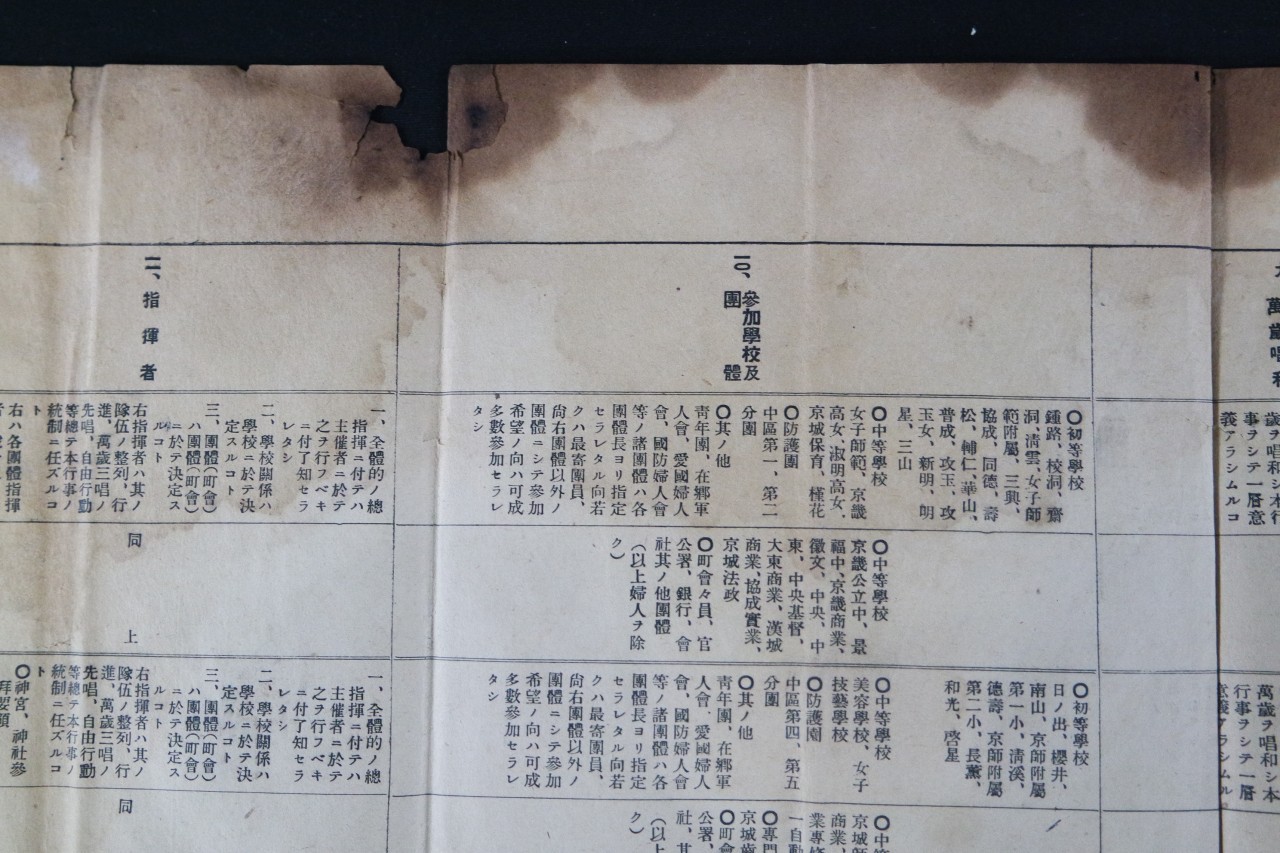 萬歲唱和
歲ヲ唱和シ本行
事ヲシテ一層意
義アラシムルコ
萬歲ヲ唱和シ本
行事ヲシテ一層
意義アラシムル
一〇、參加學校及
團體
〇初等學校
鍾路、校洞、齋
洞、淸雲、女子師
範附屬、三興、
協成、同德、壽
松、輔仁、華山、
普成、攻玉、攻
玉女、新明、明
星、三山
〇中等學校
女子師範、京畿
高女、淑明高女、
京城保育、槿花
〇防護團
中區第一、第二
分團
〇其ノ他
靑年團、在鄕軍
人會、愛國婦人
會、國防婦人會
等ノ諸團體ハ各
團體長ヨリ指定
セラレタル向若
クハ最寄團員、
尙右團體以外ノ
團體ニシテ參加
希望ノ向ハ可成
多數參加セラレ
タシ
〇中等學校
京畿公立中、景
福中、京畿商業、
徽文、中央、中
東、中央基督、
大東商業、漢城
商業、協成實業、
京城法政
〇町會々員、官
公署、銀行、會
社其ノ他團體
(以上婦人ヲ除
ク)
〇初等學校
日ノ出、櫻井、
南山、京師附屬
第一小、淸溪、
德壽、京師附屬
第二小、長薰、
和光、啓星
〇中等學校
美容學校、女子
技藝學校
〇防護團
中區第四、第五
分團
〇其ノ他
靑年團、在鄕軍
人會、愛國婦人
會、國防婦人會
等ノ諸團體ハ各
團體長ヨリ指定
セラレタル向若
クハ最寄團員、
尙右團體以外ノ
團體ニシテ參加
希望ノ向ハ可成
多數參加セラレ
タシ
〇中等
京城師
商業、
業專修
一自動
〇專門
京城齒
〇町會
公署、
社、其
(以上
ク)
二、指揮者
一、全體的ノ總
指揮ニ付テハ
主催者ニ於テ
之ヲ行フベキ
ニ付了知セラ
レタシ
二、學校關係ハ
學校ニ於テ決
定スルコト
三、團體(町會)
ハ團體(町會)
ニ於テ決定ス
ルコト
右指揮者ハ其ノ
隊伍ノ整列、行
進、萬歲三唱ノ
先唱、自由行動
等總テ本行事ノ
統制ニ任ズルコ
ト
右ハ各團體指揮
同上
一、全體的ノ總
指揮ニ付テハ
主催者ニ於テ
之ヲ行フベキ
ニ付了知セラ
レタシ
二、學校關係ハ
學校ニ於テ決
定スルコト
三、團體(町會)
ハ團體(町會)
ニ於テ決定ス
ルコト
右指揮者ハ其ノ
隊伍ノ整列、行
進、萬歲三唱ノ
先唱、自由行動
等總テ本行事ノ
統制ニ任ズルコ
ト
〇神宮、神社參
拜要領
同